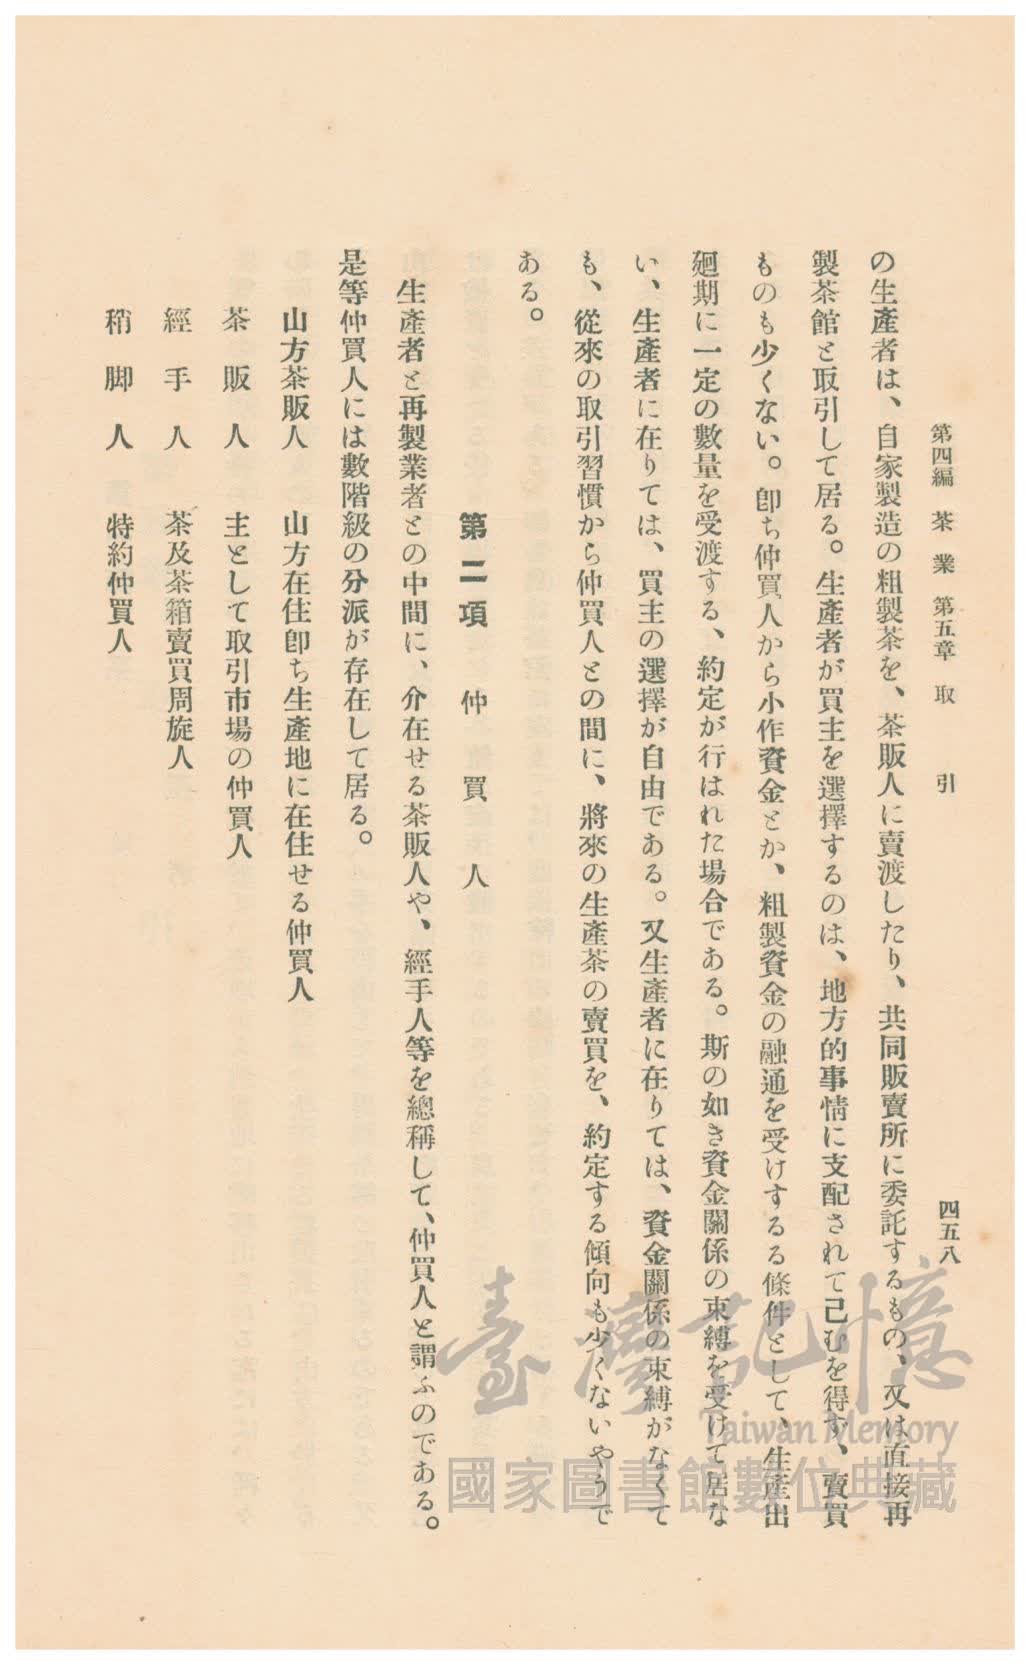 第四編 茶業 第五章 取引 四五八
の生產者は、自家製造の粗製茶を、茶販人に賣渡したり、共同販賣所に委託するもの、又は直接再
製茶館と取引して居る。生產者が買主を選擇するのは、地方的事情に支配されて已むを得ず、賣買
ものも少くない。卽ち仲買人から小作資金とか、粗製資金の融通を受けするる條件として、生產出
廻期に一定の數量を受渡する、約定が行はれた場合である。斯の如き資金關係の束縛を受けて居な
い、生產者に在りては、買主の選擇が自由である。又生產者に在りては、資金關係の束縛がなくて
も、從來の取引習慣から仲買人との間に、將來の生產茶の賣買を、約定する傾向も少くないやうで
ある。
第二項 仲買人
生產者と再製業者との中間に、介在せる茶販人や、經手人等を總稱して、仲買人と謂ふのである。
是等仲買人には數階級の分派が存在して居る。
山方茶販人 山方在住卽ち生產地に在住せる仲買人
茶販人 主として取引市場の仲買人
經手人 茶及茶箱賣買周旋人
稍脚人 特約仲買人
臺灣記憶
Taiwan Memory
國家圖書館數位典藏